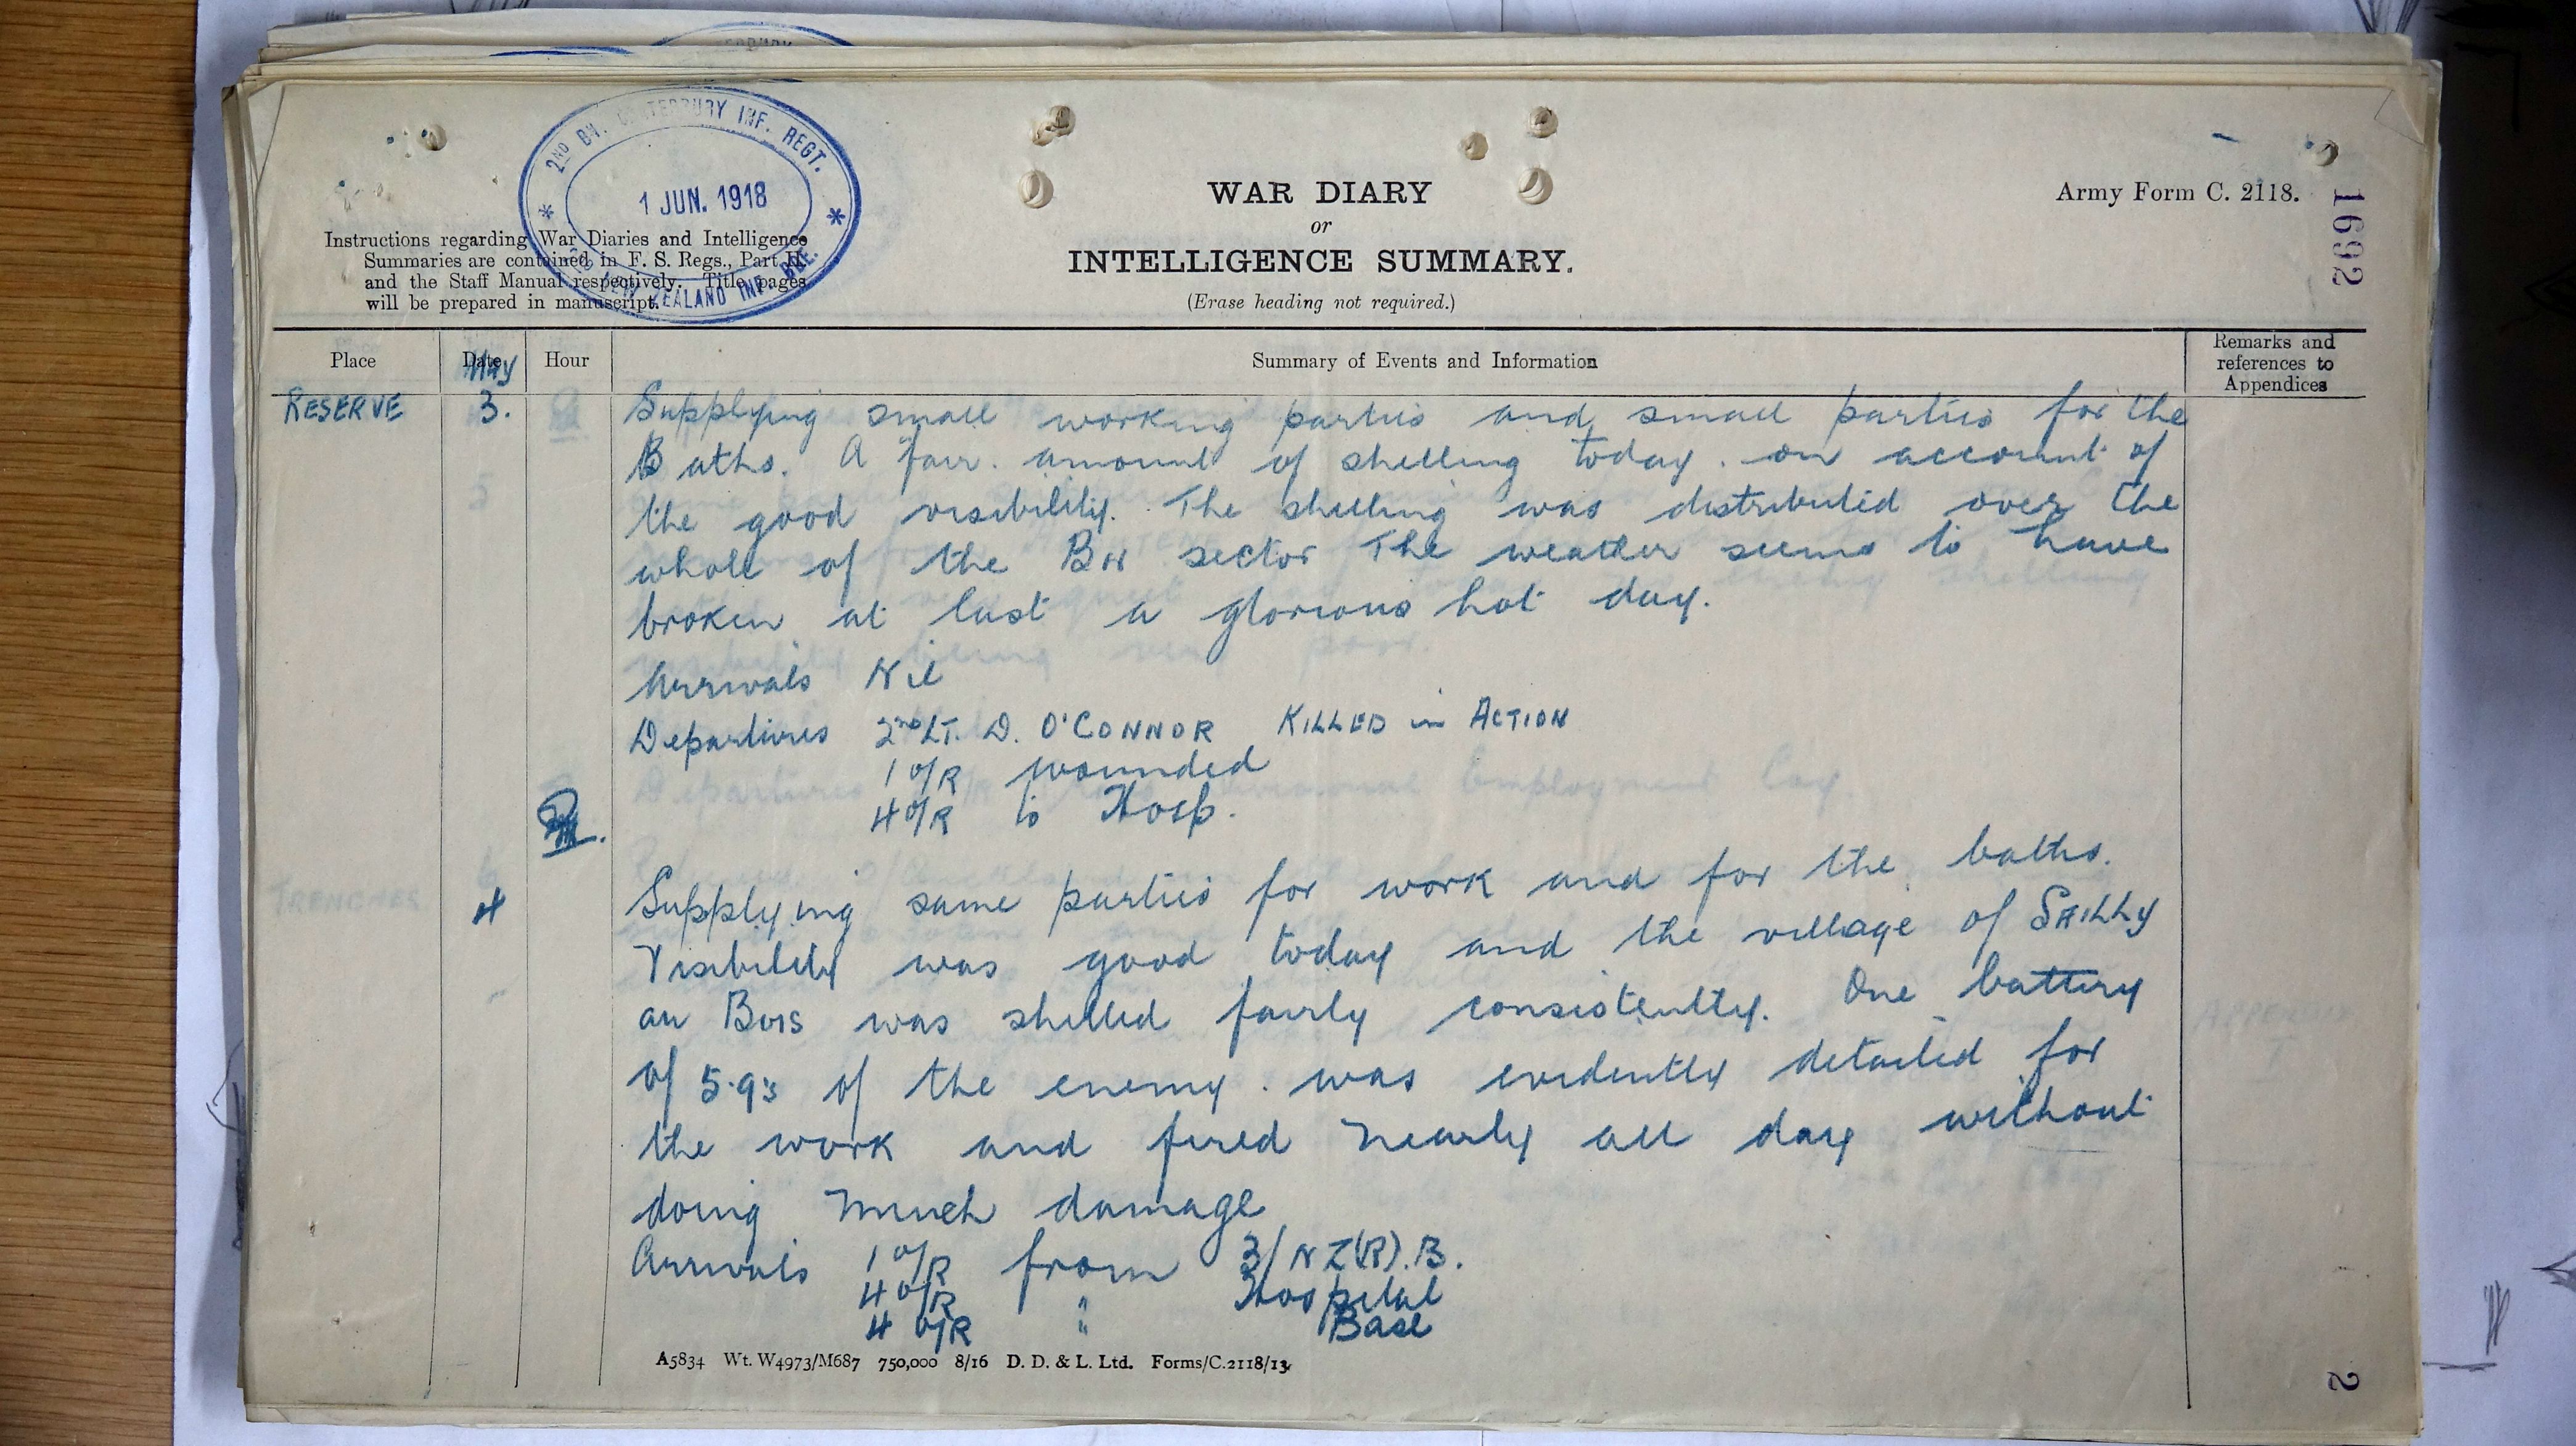 2ND BN. CANTERBURY INF. REGT.
1 JUN. 1918
NEW ZEALAND INF. BDE.
WAR DIARY
or
INTELLIGENCE SUMMARY.
(Erase heading not required.)
Army Form C. 2118.
1692
Instructions regarding War Diaries and Intelligence
Summaries are contained in F. S. Regs., Part II.
and the Staff Manual respectively. Title pages
will be prepared in manuscript.
Place Date Hour Summary of Events and Information Remarks and references to Appendices
May
RESERVE 3. Supplying small working parties and small parties for the
Baths. A fair amount of shelling today on account of
the good visibility. The shelling was distributed over the
whole of the BN sector The weather seems to have
broken at last a glorious hot day.
Arrivals Nil
Departures 2nd LT. D. O'CONNOR KILLED in ACTION
1 O/R wounded
4 O/R to Hosp.
4 Supplying same parties for work and for the baths.
Visibility was good today and the village of SAILLY
au BOIS was shelled fairly consistently. One battery
of 5.9's of the enemy was evidently detailed for
the work and fired nearly all day without
doing much damage
Arrivals 1 O/R from 3/NZ(R).B.
4 O/R " Hospital
4 O/R " Base
A5834 Wt. W4973/M687 750,000 8/16 D. D. & L. Ltd. Forms/C.2118/13.
2